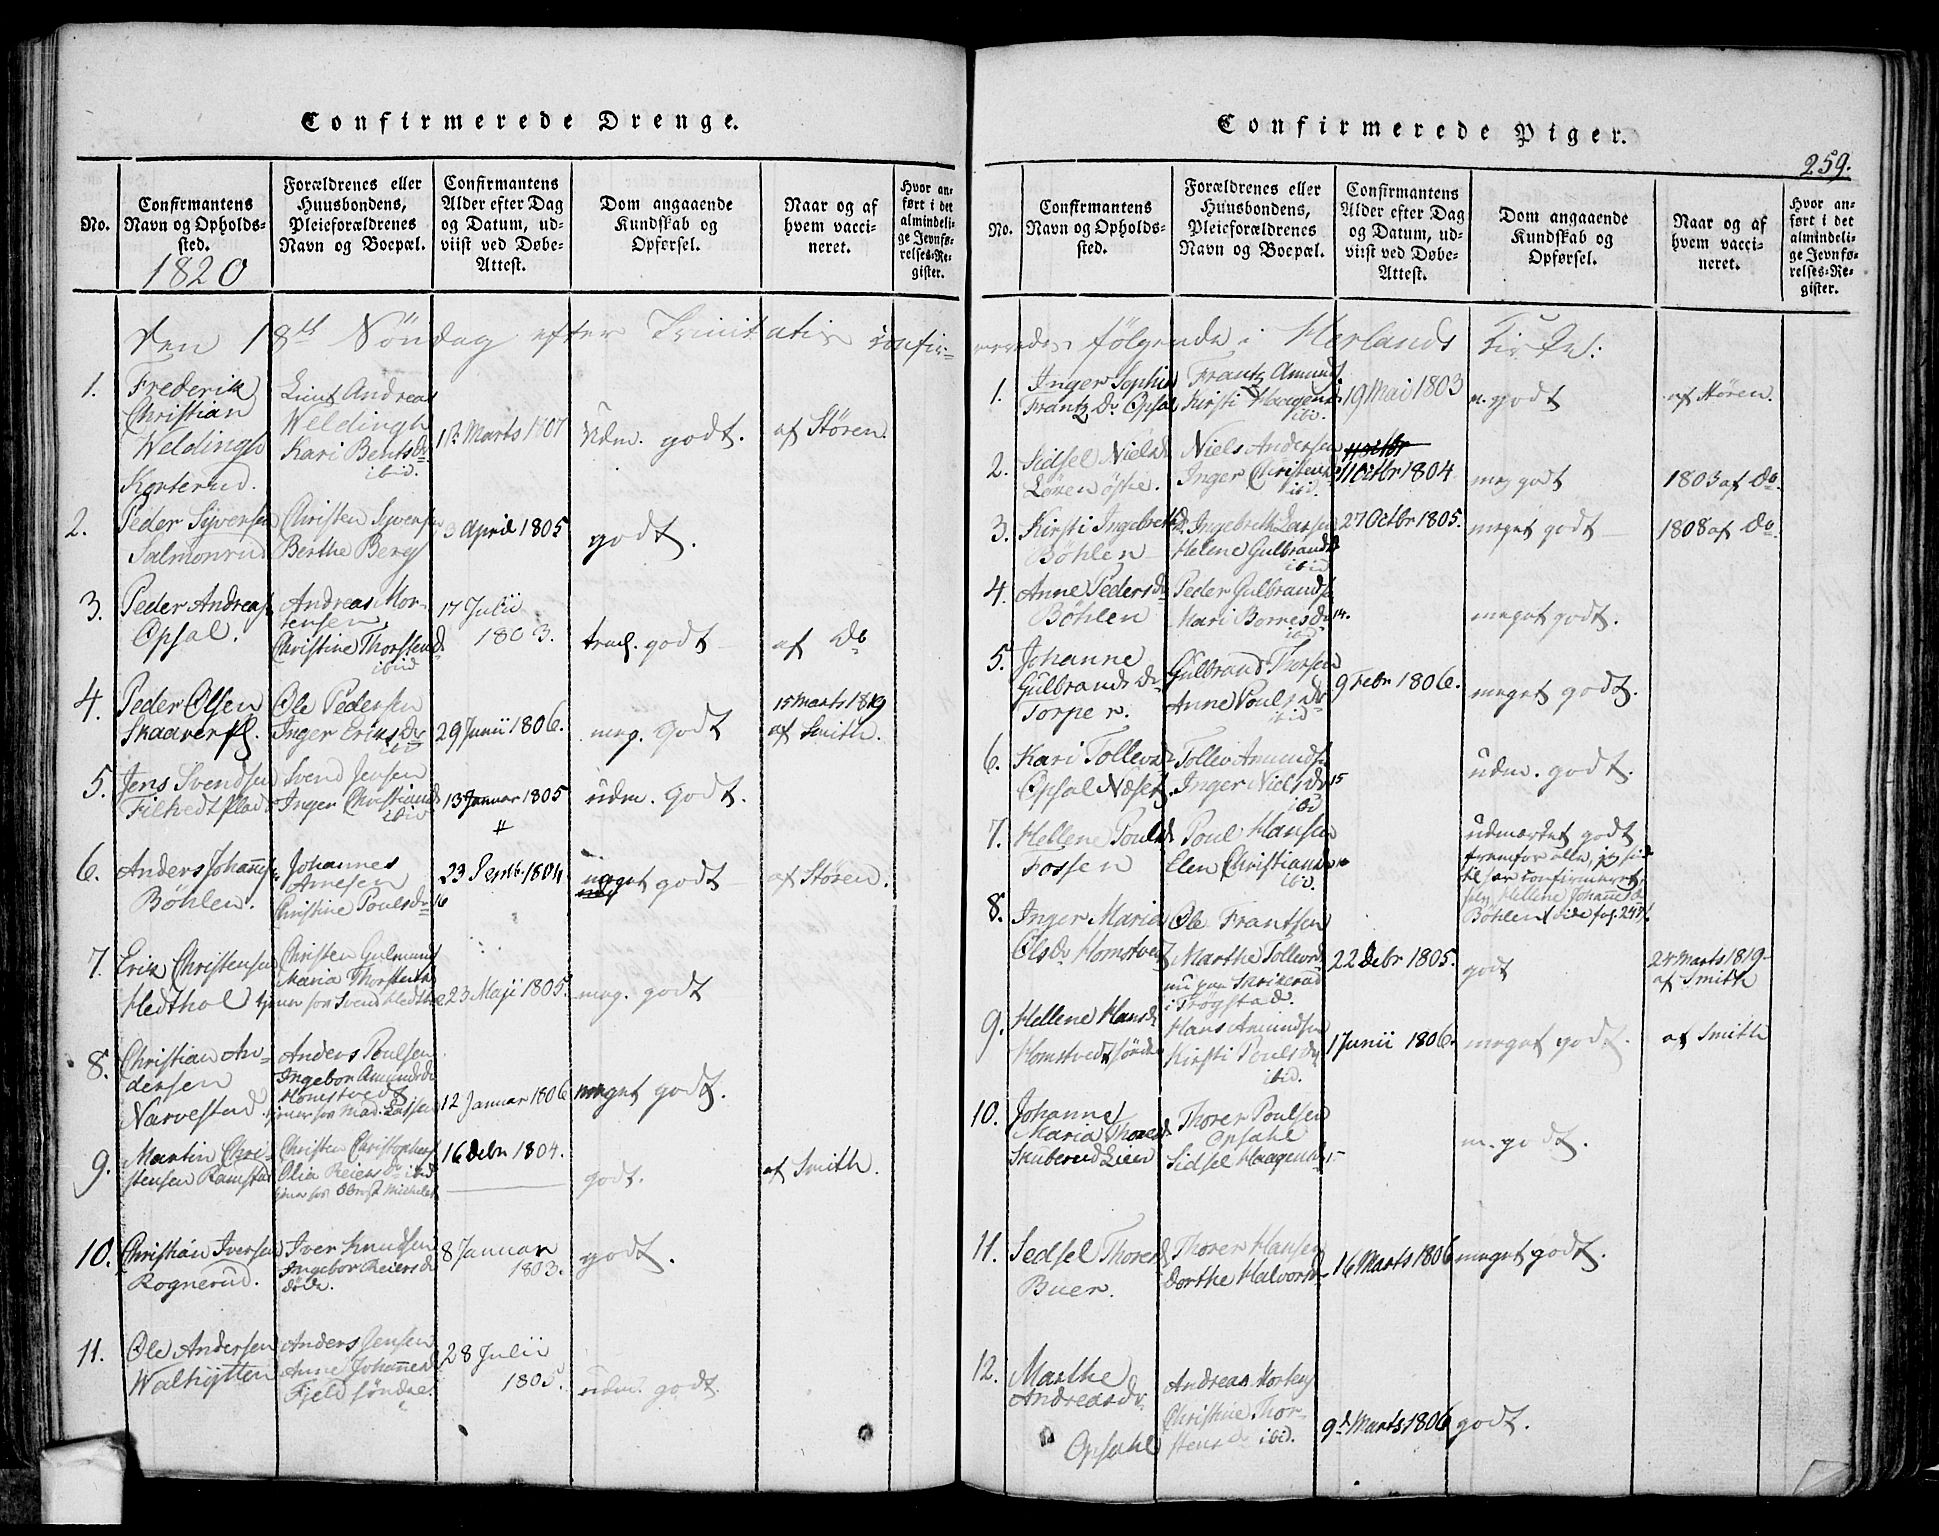 Confirmerede Drenge.
No.
Confirmantens
Navn og Opholds=
sted.
1820
Forældrenes eller
Huusbondens,
Pleieforældrenes
Navn og Boepæl.
Confirmantens
Alder efter Dag
og Datum, ud=
viist ved Døbe=
Attest.
Dom angaaende
Kundskab og
Opførsel.
Naar og af
hvem vacci=
neret.
Hvor an=
ført i det
almindeli=
ge Jevnfø=
relses=Re=
gister.
Den 18de Söndag efter Trinitatis confir=
1.
Frederik
Christian
Weldingh
Korterud.
Andreas
Weldingh
Kari Bentsdr
ibid.
Marts 1807
udm. godt.
af Stören.
2.
Peder Syversen
Salmonrud
Christen Syversen
Berthe Berg
3 April 1805
godt.
3.
Peder Andreas
Opsal.
Andreas Mor=
tensen
Christine Thorstensd
ibid
17 Julii
1803.
godt
af Do
4.
Peder Olsen
Ole Pedersen
Inger Eriksdr
29 Junii 1806.
meg. godt
15 Marts 1819
af Smith.
5.
Jens Svendsen
Svend Jensen
Inger Christiansd
ibid
13 Januar 1805
udm. godt.
6.
Anders Johannes
Böhlen.
Johannes
Arnesen
Christine Poulsdr
16
23 Septb. 1804
meget godt
af Stören.
7.
Erik Christensen
Hedthol
Christen Gulmunds
Maria Thorstensd
tjener for Svend Hedthol
23 Maji 1805.
meg. godt
8.
Christian An=
dersen
Narvestad
Anders Poulsen
Ingebor Amundsdr
Homstvedt
tjener for Mad. Lassen
12 Januar 1806
meget godt.
9.
Martin Chri=
stensen Ramstad
Christen Christophers
Olia Reiersdr ibid
tjener for Obrist Michelet
16 Debr 1804.
godt.
af Smith.
10.
Christian Iversen
Rognerud.
Iver Knudsen
Ingebor Reiersd
döde.
8 Januar
1803.
godt.
11.
Ole Andersen
Walhytten
Anders Jensen
Anne Johannesd
Fjeld söndre.
28 Julii
1805.
udm. godt.
Confirmerede Piger.
259.
No.
Confirmantens
Navn og Opholds=
sted.
Forældrenes eller
Huusbondens,
Pleieforældrenes
Navn og Boepæl.
Confirmantens
Alder efter Dag
og Datum, ud=
viist ved Døbe=
Attest.
Dom angaaende
Kundskab og
Opførsel.
Naar og af
hvem vacci=
neret.
Hvor an=
ført i det
almindeli=
ge Jevnfø=
relses=Re=
gister.
meredes fölgende i Herlands Kirke:
1.
Inger Sophia
Frantz Dr Opsal
Frantz Amunds
Kirsti Haagensd
ibid.
19 Mai 1803
m. godt
af Stören.
2.
Sidsel Nielsd
Lören östre.
Niels Andersen
Inger Christensd
ibid.
11 Octbr
11 Octbr 1804
meg godt
1803 af Do.
3.
Kirsti Ingebrethsd
Böhlen
Ingebreth Larsen
Helene Gulbrandsd
ibid
27 Octbr 1805.
meget godt
1808 af Do
4.
Anne Pedersdr
Böhlen
Peder Gulbrands
Kari Bornesdr
ibid
14.
meget godt.
5.
Johanne
Gulbrandsdr
Torper.
Gulbrand Thorsen
Anne Poulsdr
ibid
9 Febr 1806.
meget godt.
6.
Kari Tollevsd
Opsal Næset
Tollev Amunds
Inger Nielsdr
ibid
15
udm. godt.
7.
Hellene Poulsd
Fossen
Poul Hansen
Elen Christiansd
ibid.
udmærket godt
fremfor alle, jeg sid
til har confirmeret
Hellene Johannesdr
Böhlen
8.
Inger Maria
Olsdr Homstvedt
Ole Frantsen
Marthe Tollevsd
nu paa Skrikerud
i Trögstad.
22 Debr 1805.
godt
24 Marts 1819
af Smith
9.
Hellene Hansd
Homstvedt söndre
Hans Amundsen
Kirsti Poulsdr
ibid.
1 Junii 1806.
meget godt.
af Smith
10.
Johanne
Maria Thoresd
Skuberud Eien
Thorer Poulsen
Opsahl
Sidsel Haagensd
m. godt.
11.
Sedsel Thorersd
Buer.
Thorer Hansen
Dorthe Halvorsd
16 Marts 1806
meget godt.
12.
Marthe
Andreasdr
Opsahl
Andreas Mortens
Christine Thor=
stensdr ibid.
9d Marts 1806
godt.